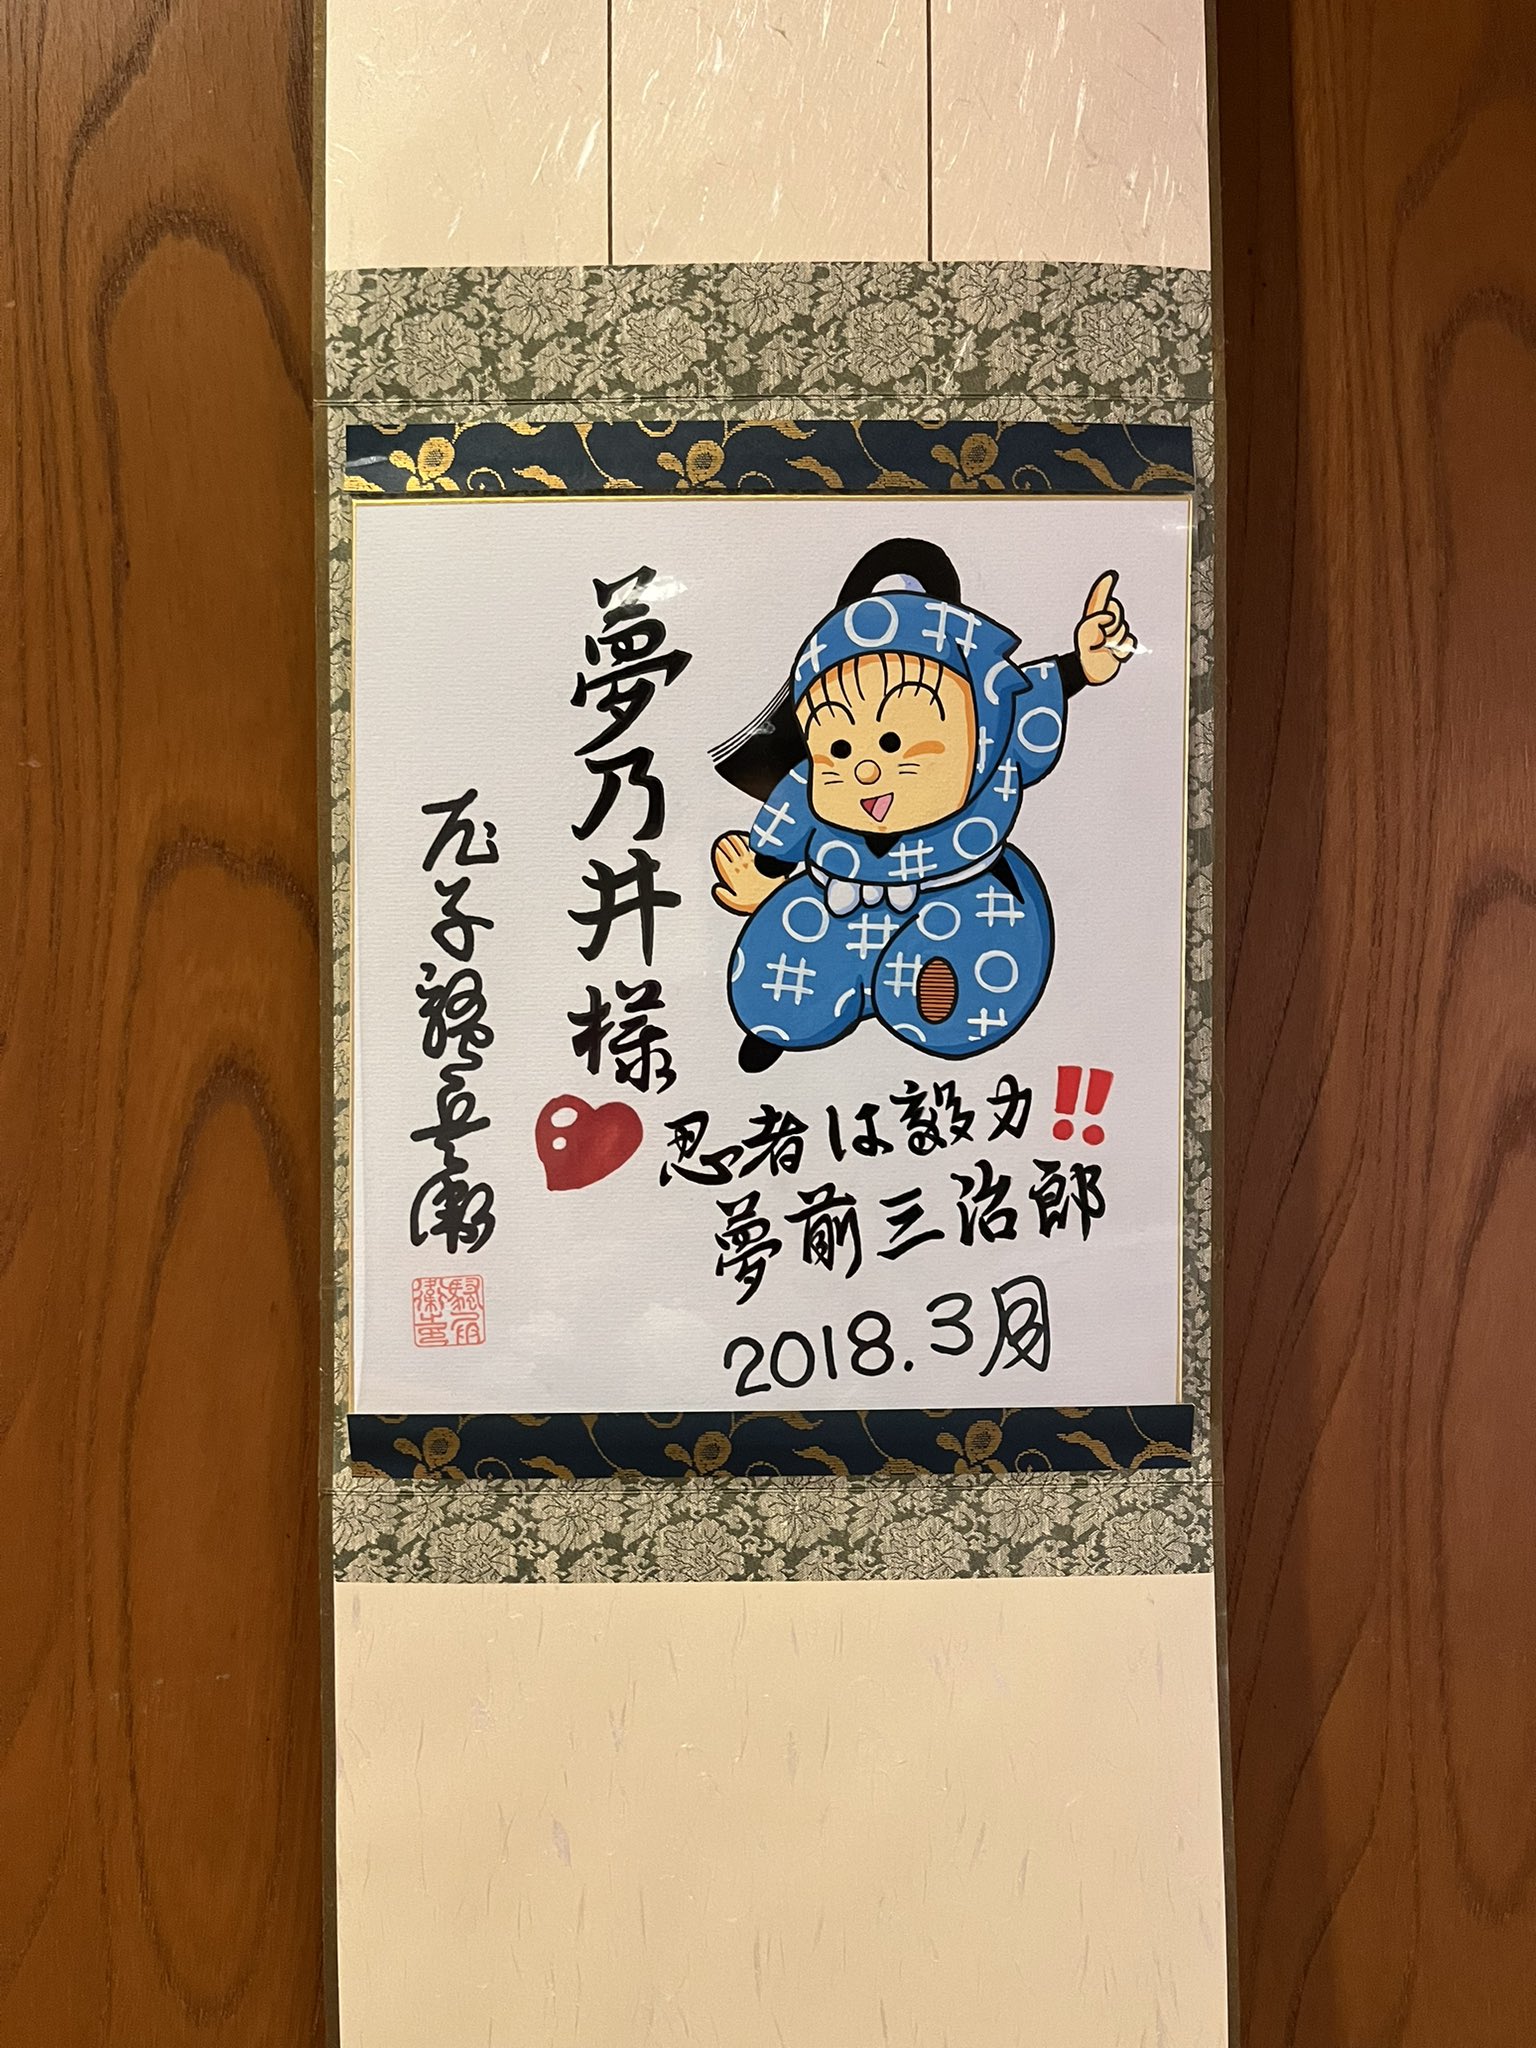 夢乃井様
忍者は毅力!!
夢前三治郎
2018.3月
尼子騒兵衛